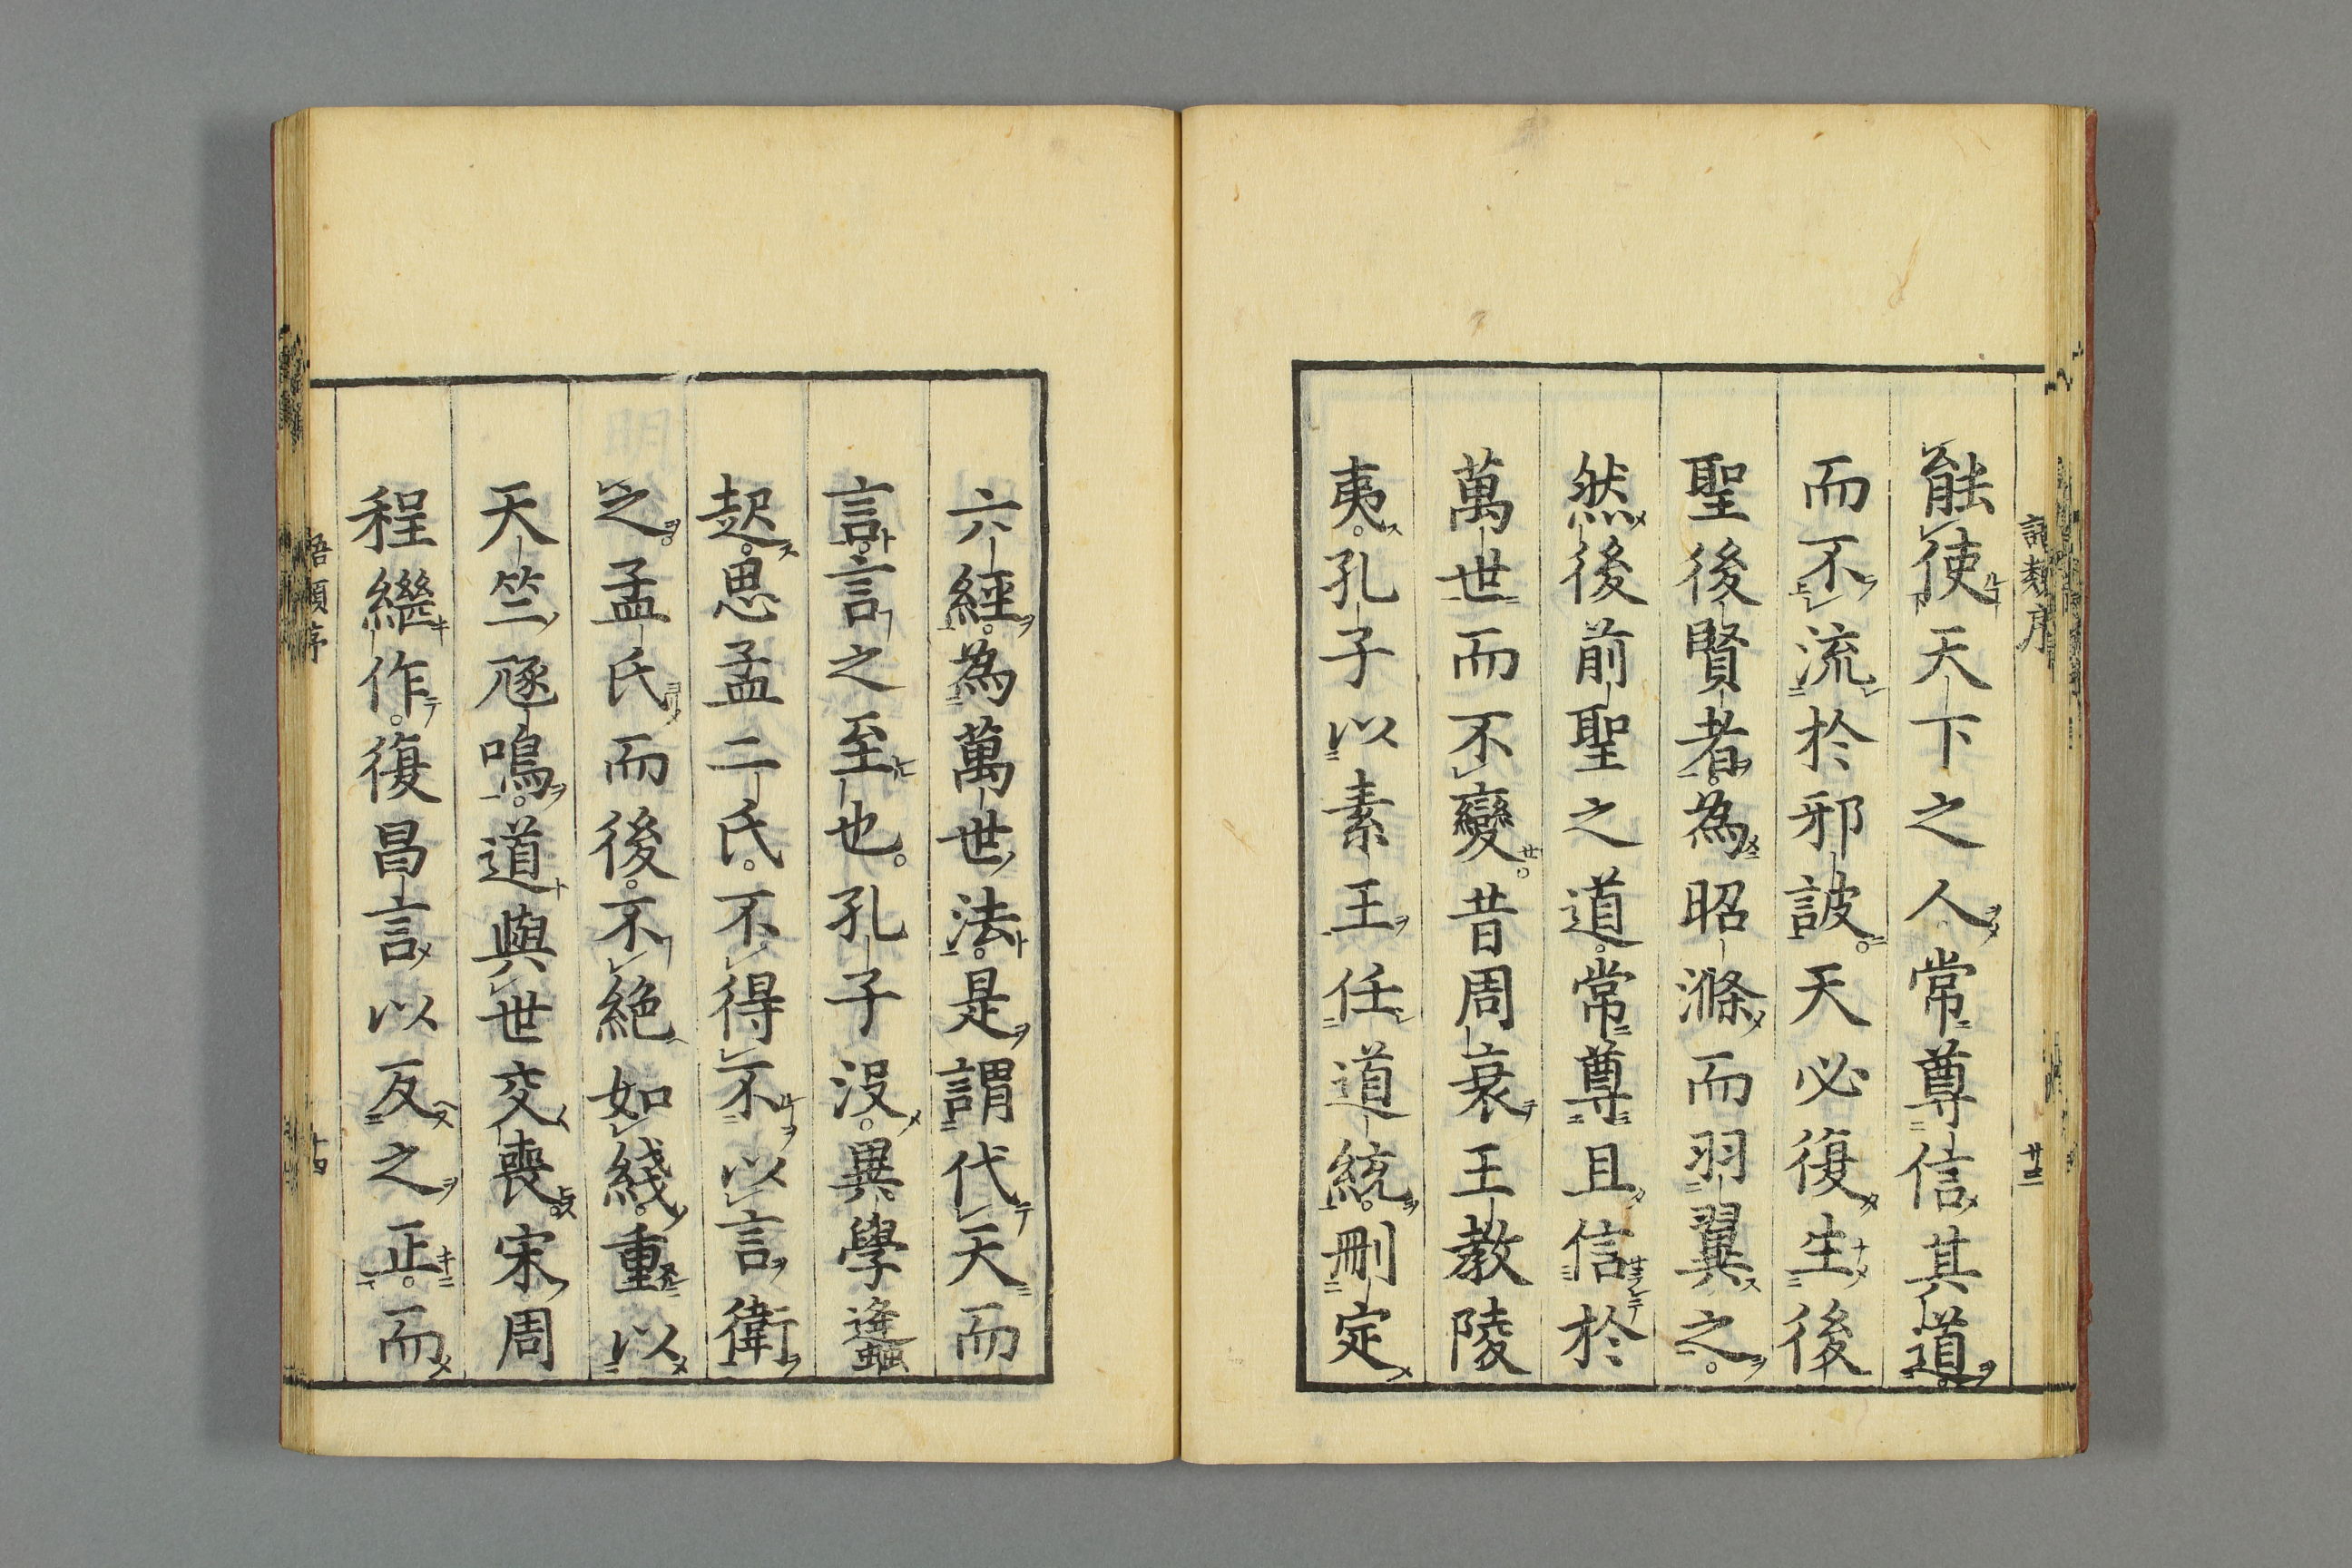 語類序
廿三
能使天下之人常尊信其道
而不流於邪詖天必復生後
聖後賢者為昭滌而羽翼之
然後前聖之道常尊且信於
萬世而不變昔周衰王教陵
夷孔子以素王任道統刪定
六經為萬世法是謂代天而
言言之至也孔子沒異學蠭
起思孟二氏不得不以言衛
之孟氏而後不絕如綫重以
天竺豗鳴道與世交喪宋周
程繼作復昌言以反之正而
語類序